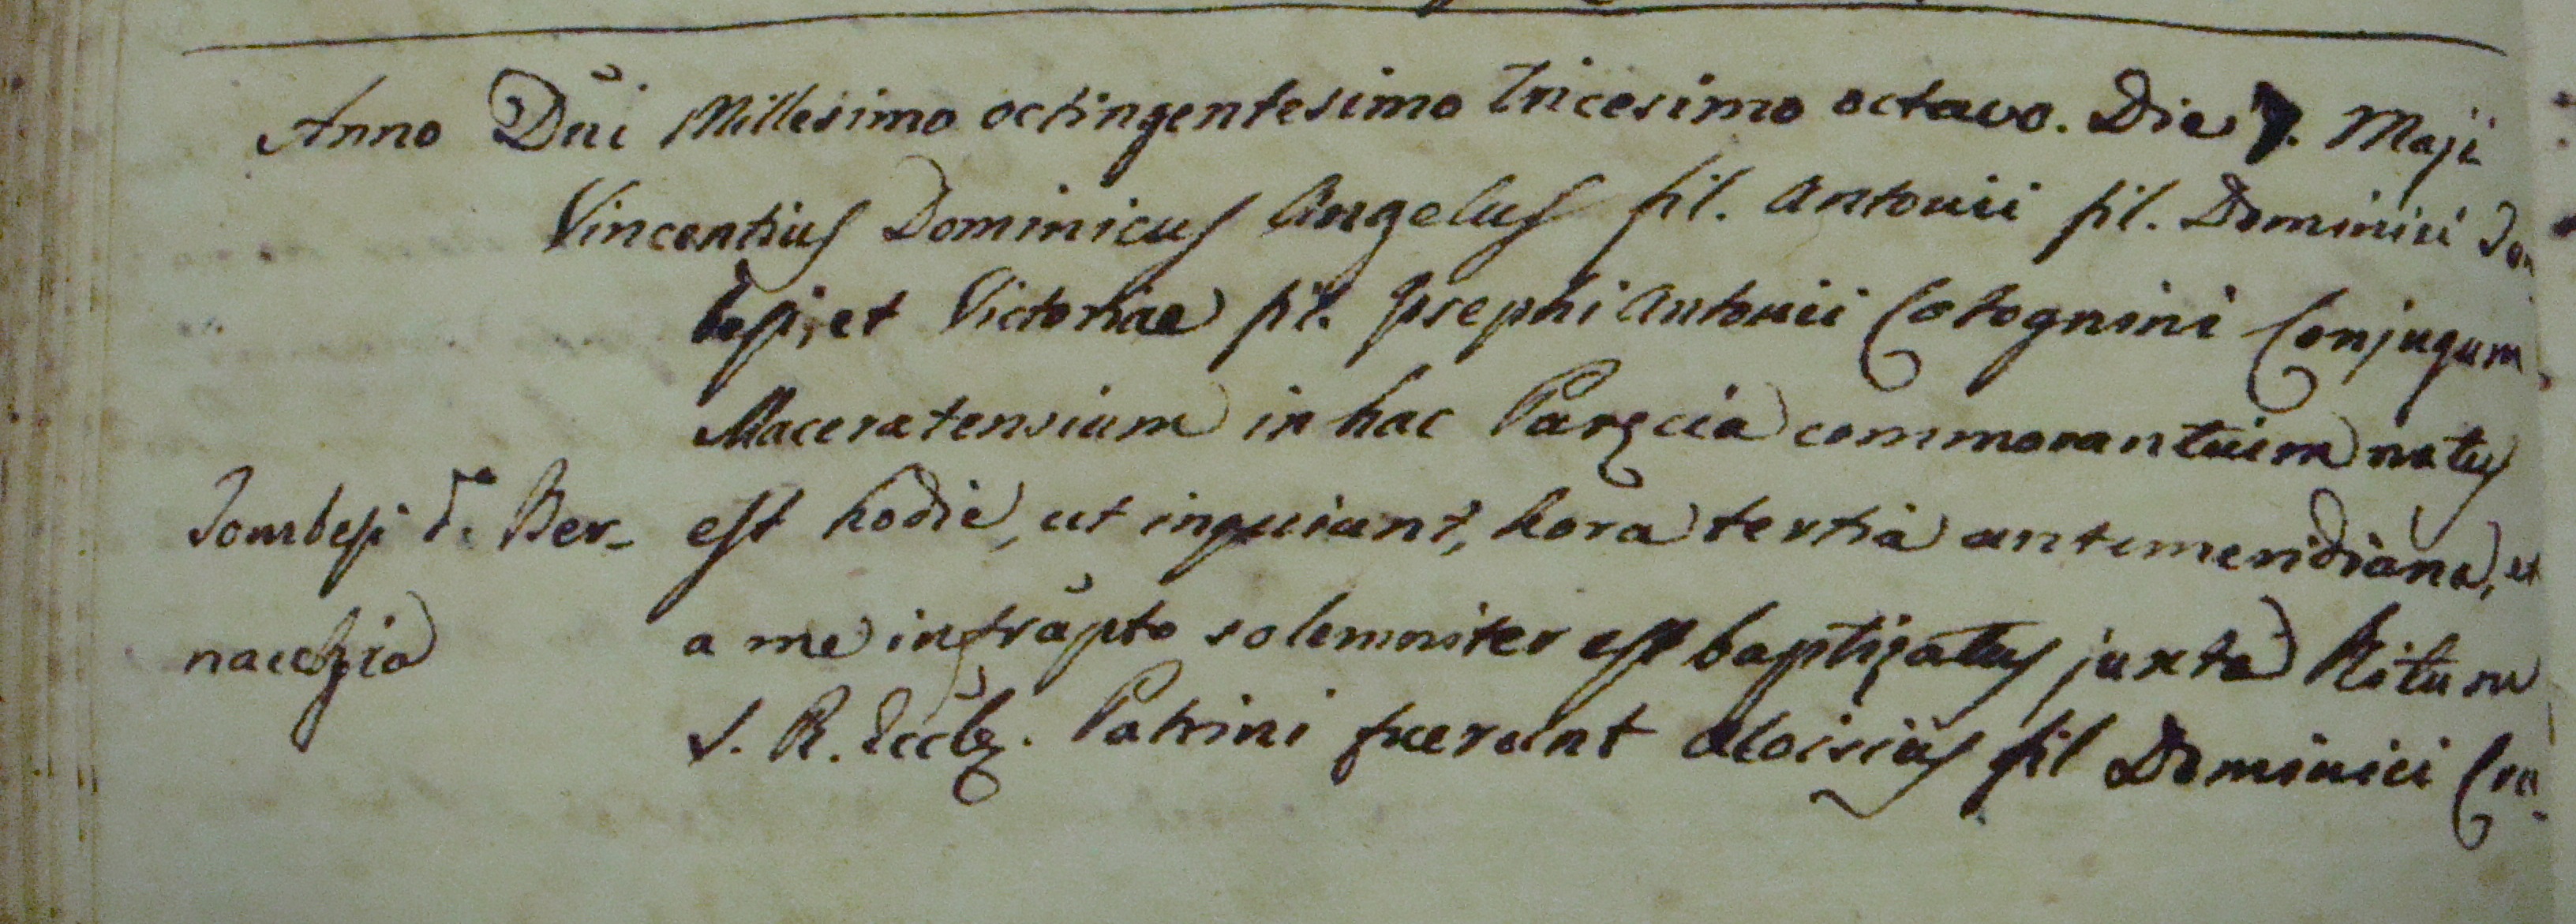 Anno Dñi Millesimo octingentesimo Tricesimo octavo. Die 7. Maji
Vincentius Dominicus Angelus fil. Antonii fil. Dominici Jom
besi, et Victoriae fil. Josephi Antonii Colognini Conjugum
Maceratensium in hac Parœcia commorantium natus
est hodie, ut inquiunt, hora tertia antemeridiana, et
Jombesi d.
a me infrãpto solemniter est baptizatus juxta Ritum
S. R. Eccl̃æ. Patrini fuerunt Aloisius fil Dominici